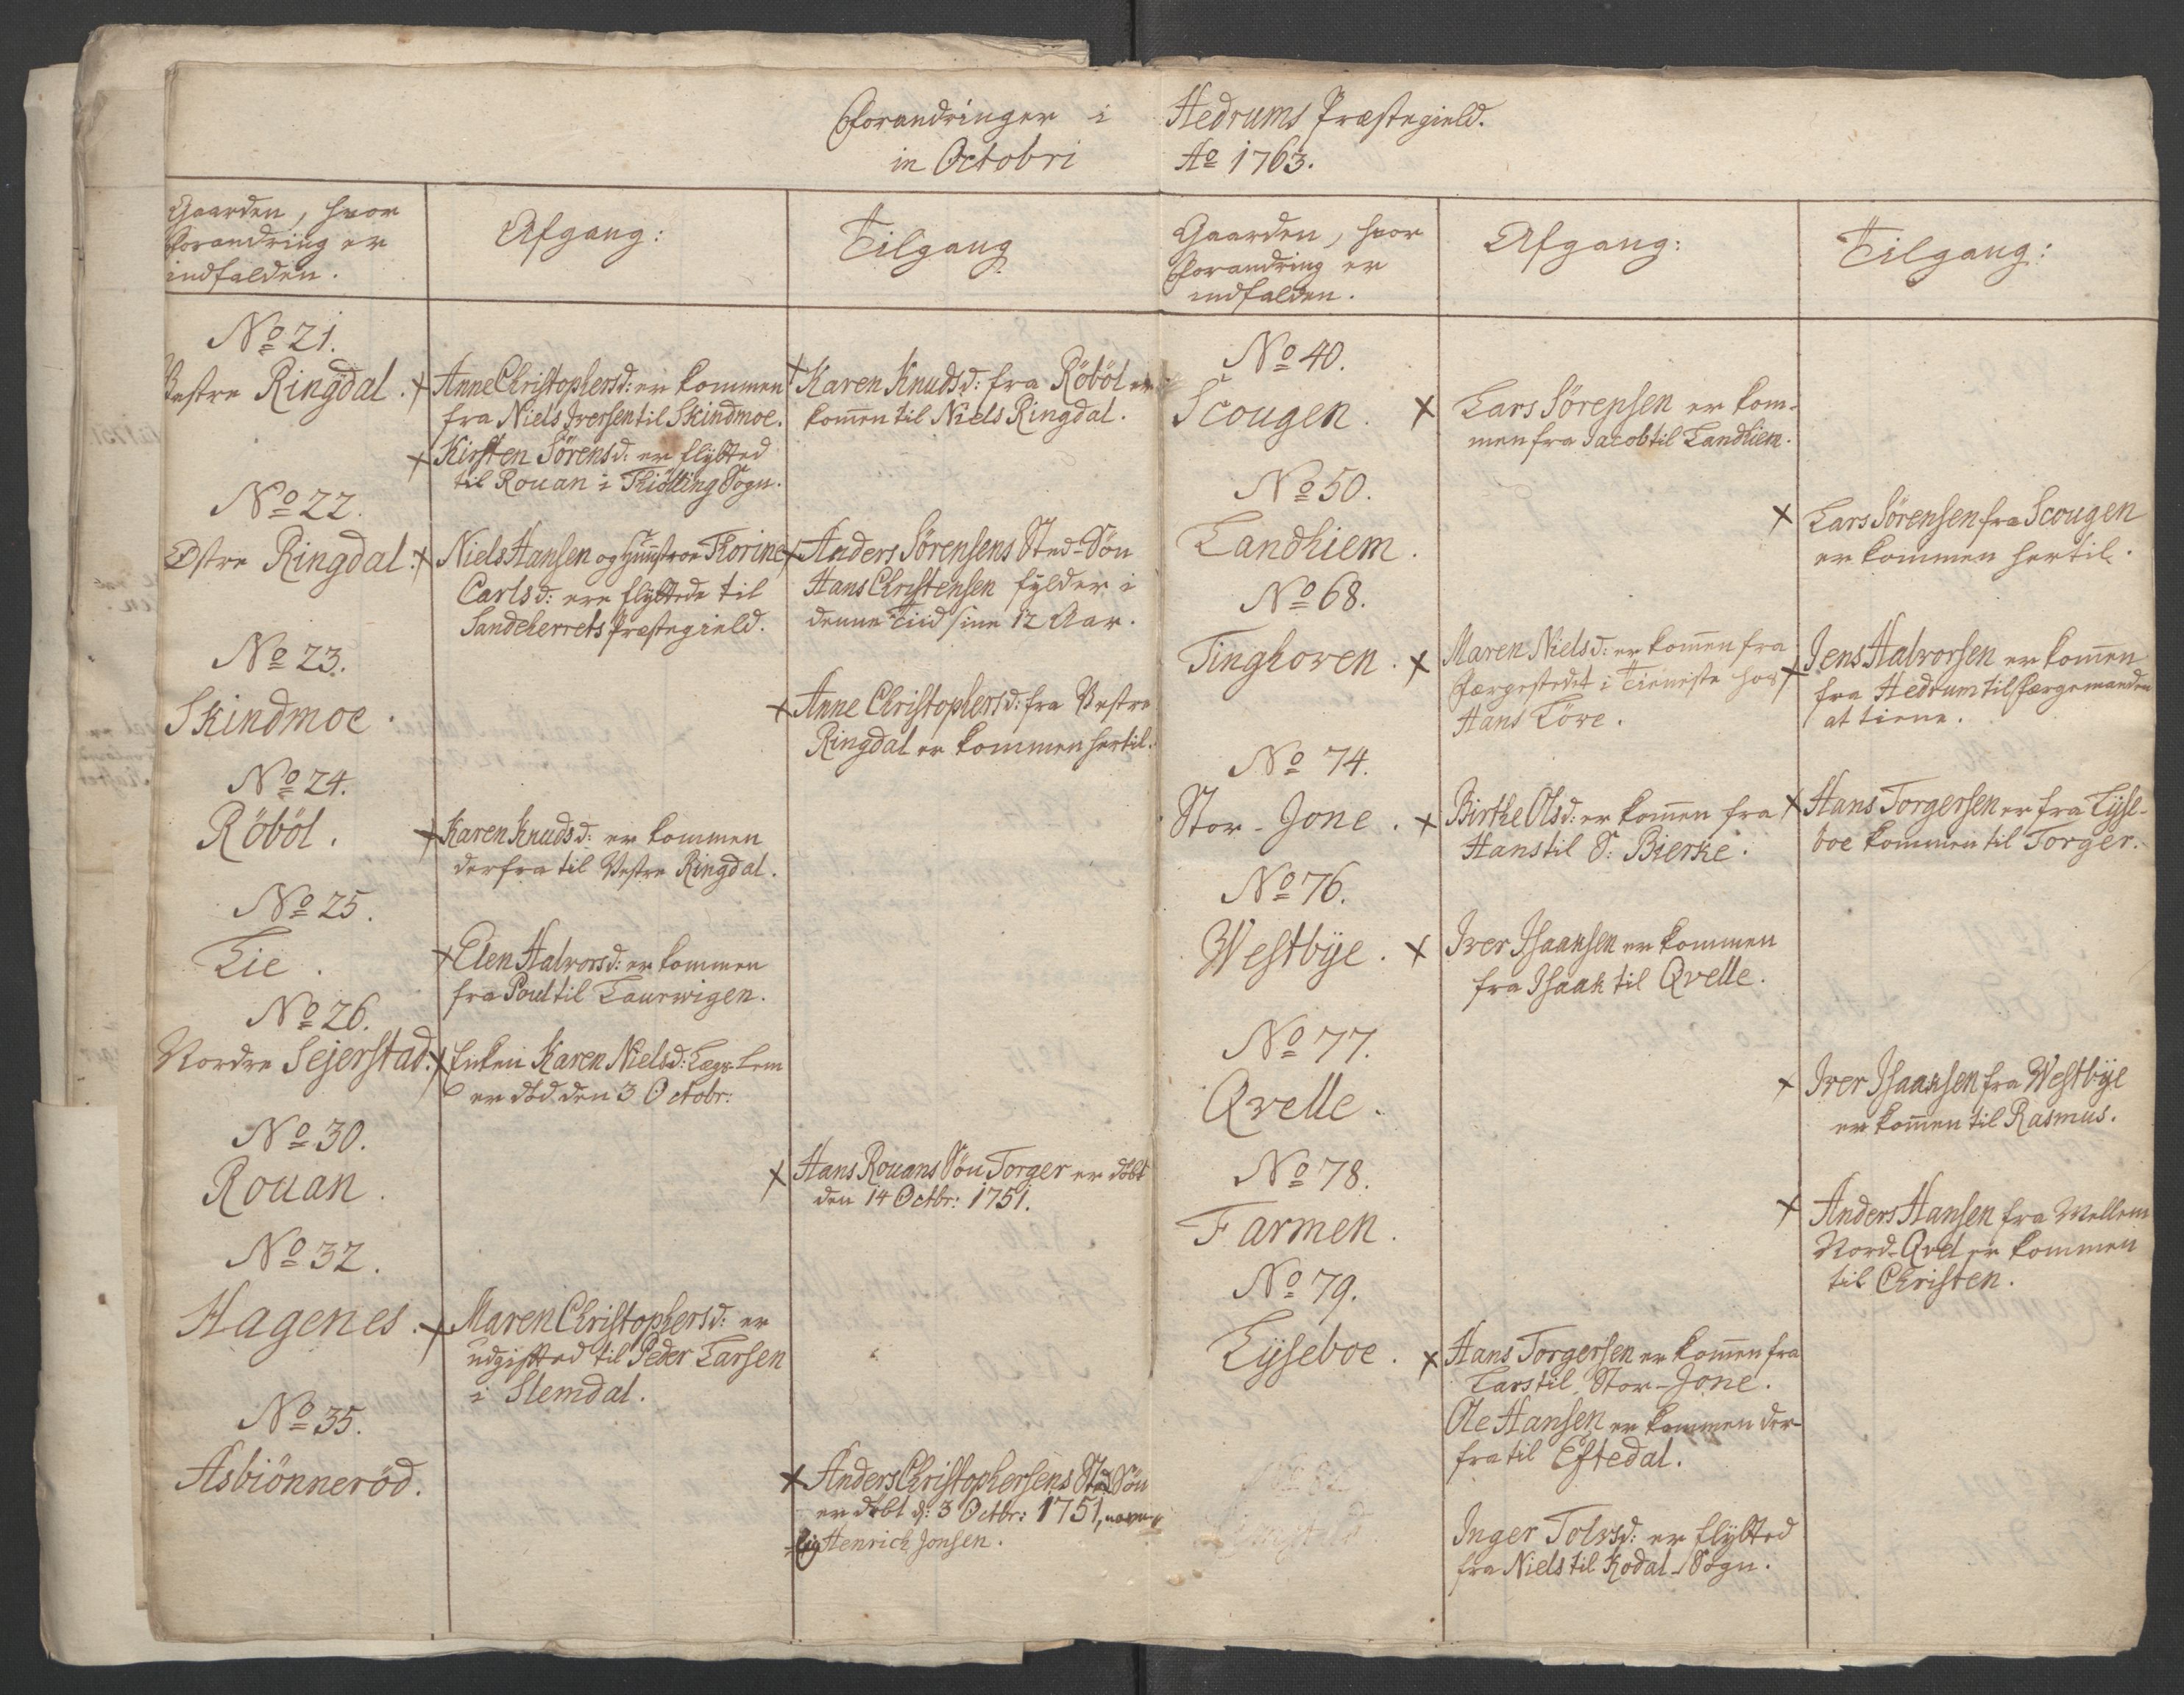 Forandringer i Hedrums Præstegield.
in Octobri Aō 1763.
Gaarden, hvor
forandring er
indfalden.
Afgang:
Tilgang
No 21.
Vestre Ringdal.
+ Anne Christophersd: er kommen
fra Niels Iversen til Skindmoe.
+ Kirsten Sörensd: er flÿtted
til Rouan i Thiölling Sogn.
+ Karen Knudsd: fra Röböl er
kom̄en til Niels Ringdal.
No 22.
Østre Ringdal.
+ Niels Hansen og Hustroe Thorine
Carlsd: ere flÿttede til
Sandeherrets Præstegield.
+ Anders Sörensens Sted-Sön
Hans Christensen fÿlder i
denne Tiid sine 12 Aar.
No 23.
Skindmoe.
+ Anne Christophersd: fra Vestre
Ringdal er kommen hertil.
No 24.
Röböl.
+ Karen Knudsd: er kommen
derfra til Vestre Ringdal.
No 25.
Lie.
+ Elen Halvorsd: er kommen
fra Poul til Laurwigen.
No 26.
Nordre Sejerstad.
+ Enken Karen Nielsd: Lægs-Lem
er död den 3 Octobr:
No 30.
Rouan.
+ Hans Rouans Sön Torger er döbt
den 14 Octbr: 1751.
No 32.
Hagenes.
+ Maren Christophersd: er
udgifted til Peder Larsen
i Slemdal.
No 35.
Asbiönneröd.
+ Anders Christophersens Sted Sön
er döbt d: 3 Octbr: 1751, navn-
lig Henrich Jonsen.
Gaarden, hvor
forandring er
indfalden.
Afgang:
Tilgang:
No 40.
Scougen.
+ Lars Sörensen er kom-
men fra Jacob til Landhiem.
No 50.
Landhiem.
+ Lars Sörensen fra Scougen
er kommen hertil.
No 68.
Tinghoven.
+ Maren Nielsd: er kom̄en fra
Færgestedet i Tieneste hos
Hans Löve.
+ Jens Halvorsen er kom̄en
fra Hedrum til Færgemanden
at tiene.
No 74.
Stor-Jone.
+ Birthe Olsd: er kom̄en fra
Hans til S: Bierke.
+ Hans Torgersen er fra Lÿse-
boe kommen til Torger.
No 76.
Westbÿe.
+ Iver Isaaksen er kommen
fra Isaak til Qvelle.
No 77.
Qvelle.
+ Iver Isaaksen fra Westbÿe
er kom̄en til Rasmus.
No 78.
Farmen.
+ Anders Hansen fra Mellem
Nord-Qvel er kommen
til Christen.
No 79.
Lÿseboe.
+ Hans Torgersen er kom̄en fra
Lars til Stor-Jone.
Ole Hansen er kommen der-
fra til Eftedal.
Inger Tolvsd: er flÿtted
fra Niels til Kodal-Sogn.